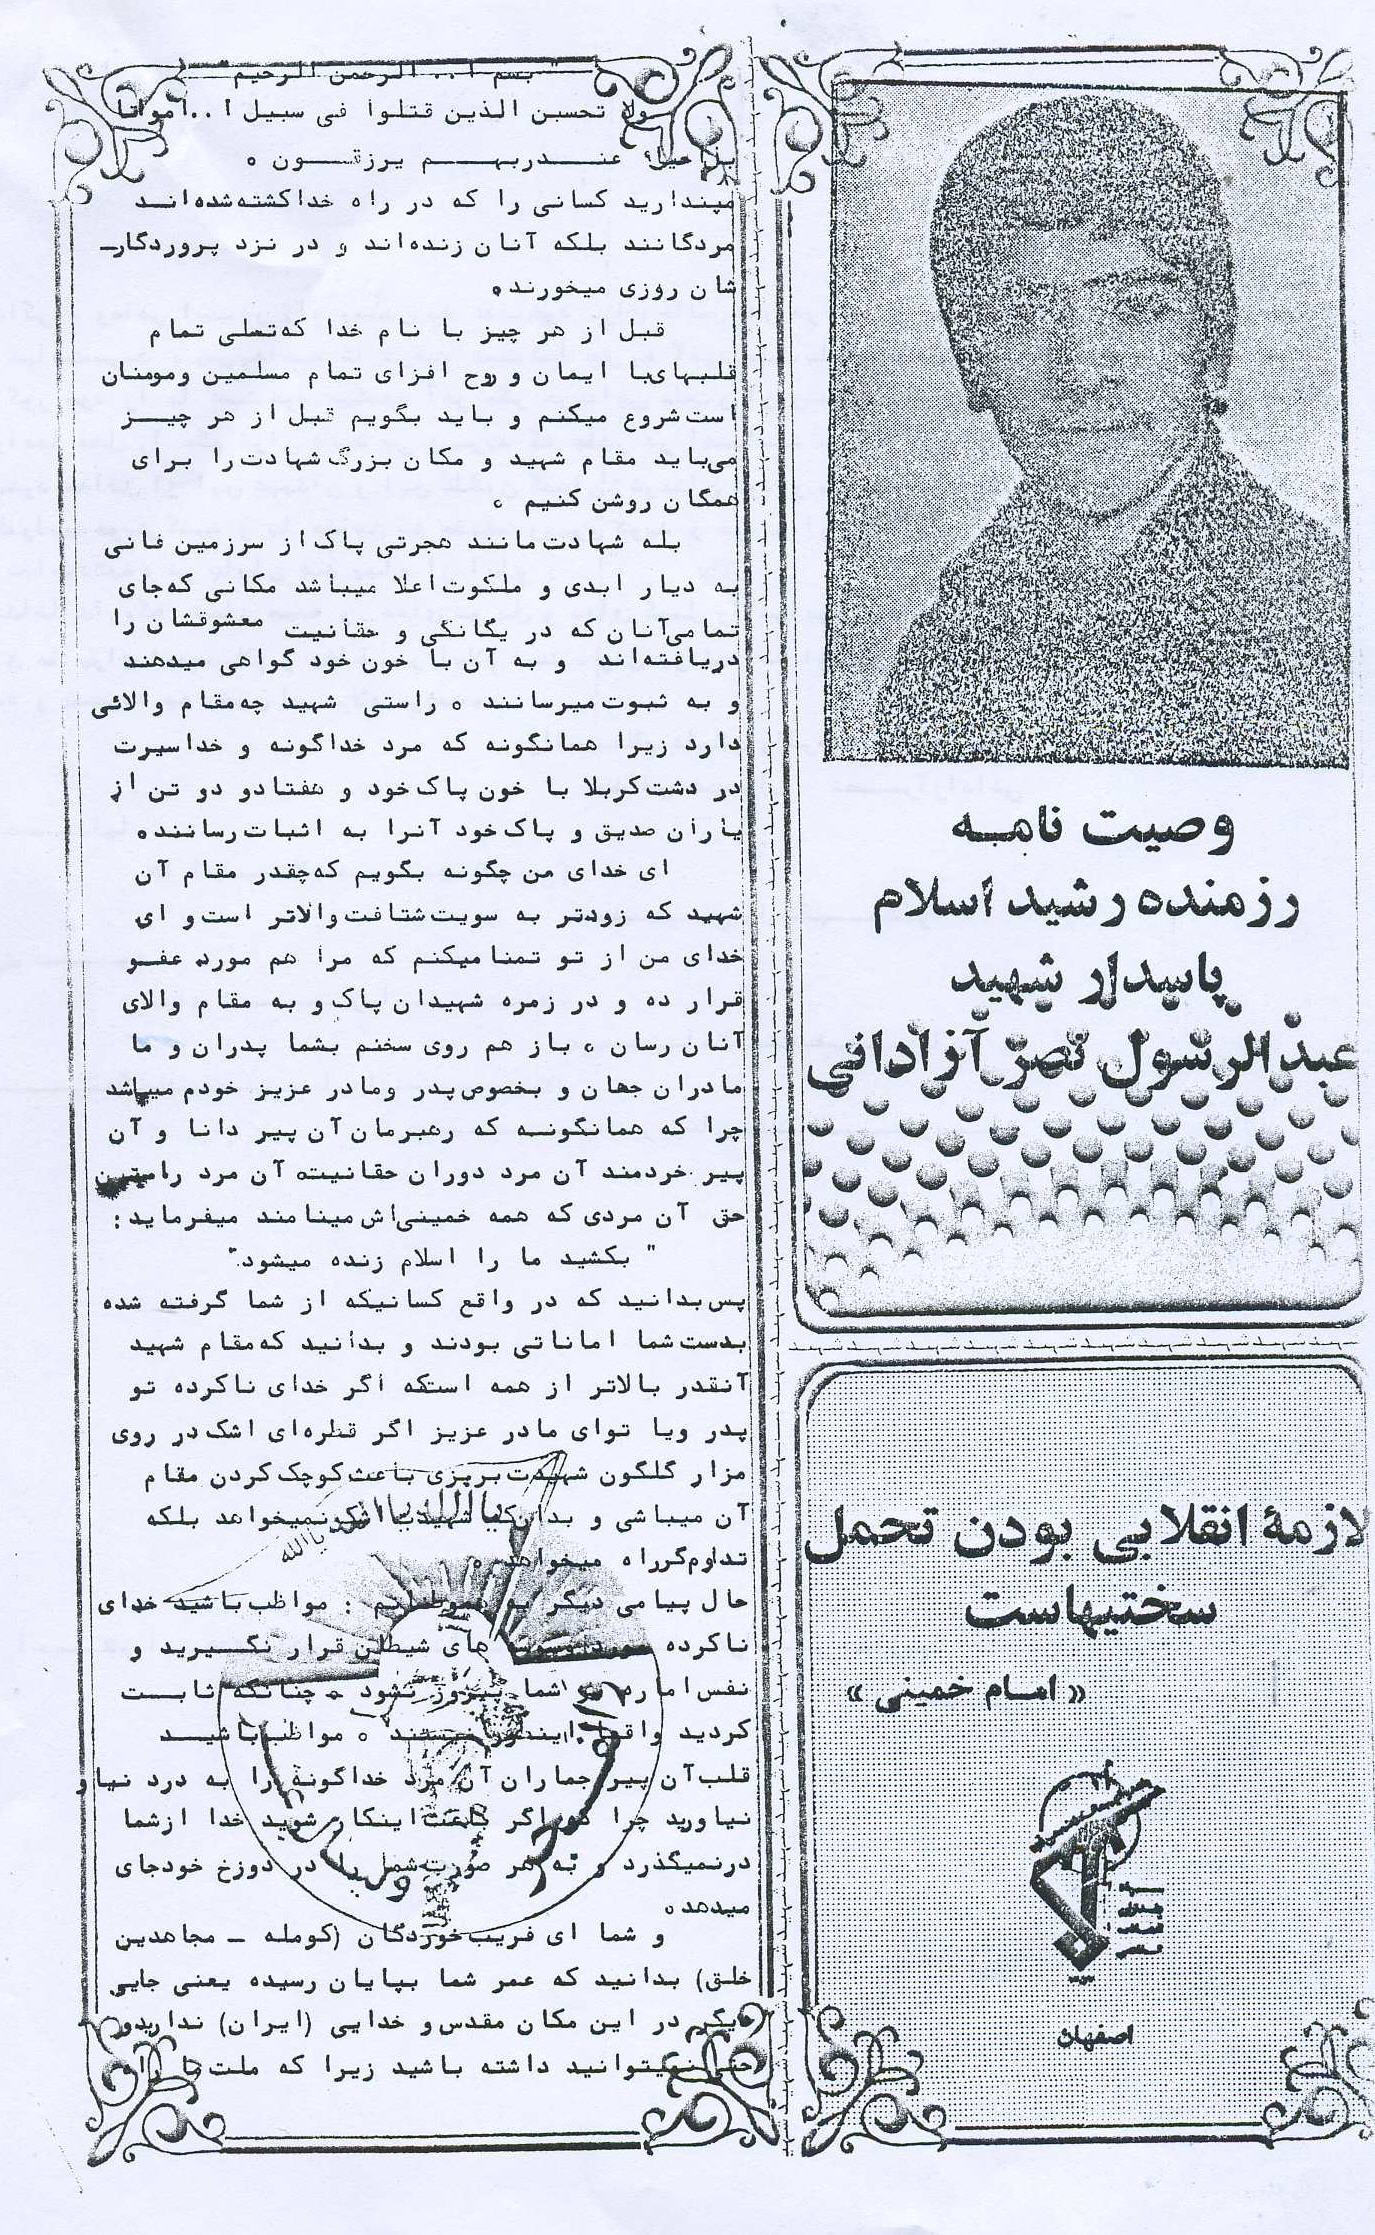 وصیت نامه
رزمنده رشید اسلام
پاسدار شهید
عبدالرسول نصر آزادانی
لازمهٔ انقلابی بودن تحمل
سختیهاست
«امام خمینی»
اصفهان
"بسم ا.. الرحمن الرحیم"
ولا تحسبن الذین قتلوا فی سبیل ا..امواتا
عندربهم یرزقون ۰
مپندارید کسانی را که در راه خداکشته‌شده‌اند
مردگانند بلکه آنان زنده‌اند و در نزد پروردگار-
شان روزی میخورند۰
قبل از هر چیز با نام خدا که‌تعلی تمام
قلبهای‌با ایمان و روح افزای تمام مسلمین ومومنان
است‌شروع میکنم و باید بگویم قبل از هر چیز
می‌باید مقام شهید و مکان بزرگ‌شهادت‌را برای
همگان روشن کنیم ۰
بله شهادت‌مانند هجرتی پاک‌از سرزمین فانی
به دیار ابدی و ملکوت‌اعلا میباشد مکانی که‌جای
تمامی‌آنان که در یگانگی و حقانیت معشوقشان را
دریافته‌اند و به آن با خون خود گواهی میدهند
و به ثبوت‌میرسانند ۰ راستی شهید چه‌مقام والائی
دارد زیرا همانگونه که مرد خداگونه و خداسیرت
در دشت‌کربلا با خون پاک‌خود و هفتادو دو تن از
یاران صدیق و پاک‌خود آنرا به اثبات‌رساننده
ای خدای من چگونه بگویم که‌چقدر مقام آن
شهید که زودتر به سویت‌شتافت‌والاتر است‌و ای
خدای من از تو تمنامیکنم که مرا هم مورد عفو
قرار ده و در زمره شهیدان پاک‌و به مقام والای
آنان رسان ۰ باز هم روی سخنم بشما پدران و ما
مادران جهان و بخصوص‌پدر ومادر عزیز خودم میباشد
چرا که همانگونه که رهبرمان‌آن پیر دانا و آن
پیر خردمند آن مرد دوران حقانیت آن مرد راستین
حق آن مردی که همه خمینی‌اش‌مینامند میفرماید:
"بکشید ما را اسلام زنده میشود"
پس‌بدانید که در واقع کسانیکه از شما گرفته شده
بدست‌شما اماناتی بودند و بدانید که‌مقام شهید
آنقدر بالاتر از همه است‌که اگر خدای ناکرده تو
پدر ویا توای مادر عزیز اگر قطره‌ای اشک‌در روی
مزار گلگون شهیدت‌بریزی باعث‌کوچک‌کردن مقام
آن میباشی و بدان‌که شهید نمیخواهد بلکه
تداوم‌گرراه میخواهد۰
حال پیامی دیگر به هموطنانم : مواظب‌باشید خدای
ناکرده مورد های شیطان قرار نگیرید و
نفس‌اماره بر شما پیروز نشود - چنانکه ثابت
کردید واقعا اینطور ۰ مواظب‌باشید
قلب‌آن پیر جماران آن مرد خداگونه را به درد نیاو
نیاورید چرا که اگر باعث‌اینکار شوید خدا ازشما
درنمیگذرد و به هر صورت‌شما را در دوزخ خودجای
میدهد۰
و شما ای فریب‌خوردگان (کومله - مجاهدین
خلق) بدانید که عمر شما بپایان رسیده یعنی جایی
دیگر در این مکان مقدس‌و خدایی (ایران) نداریدو
حتی نمیتوانید داشته باشید زیرا که ملت‌ما